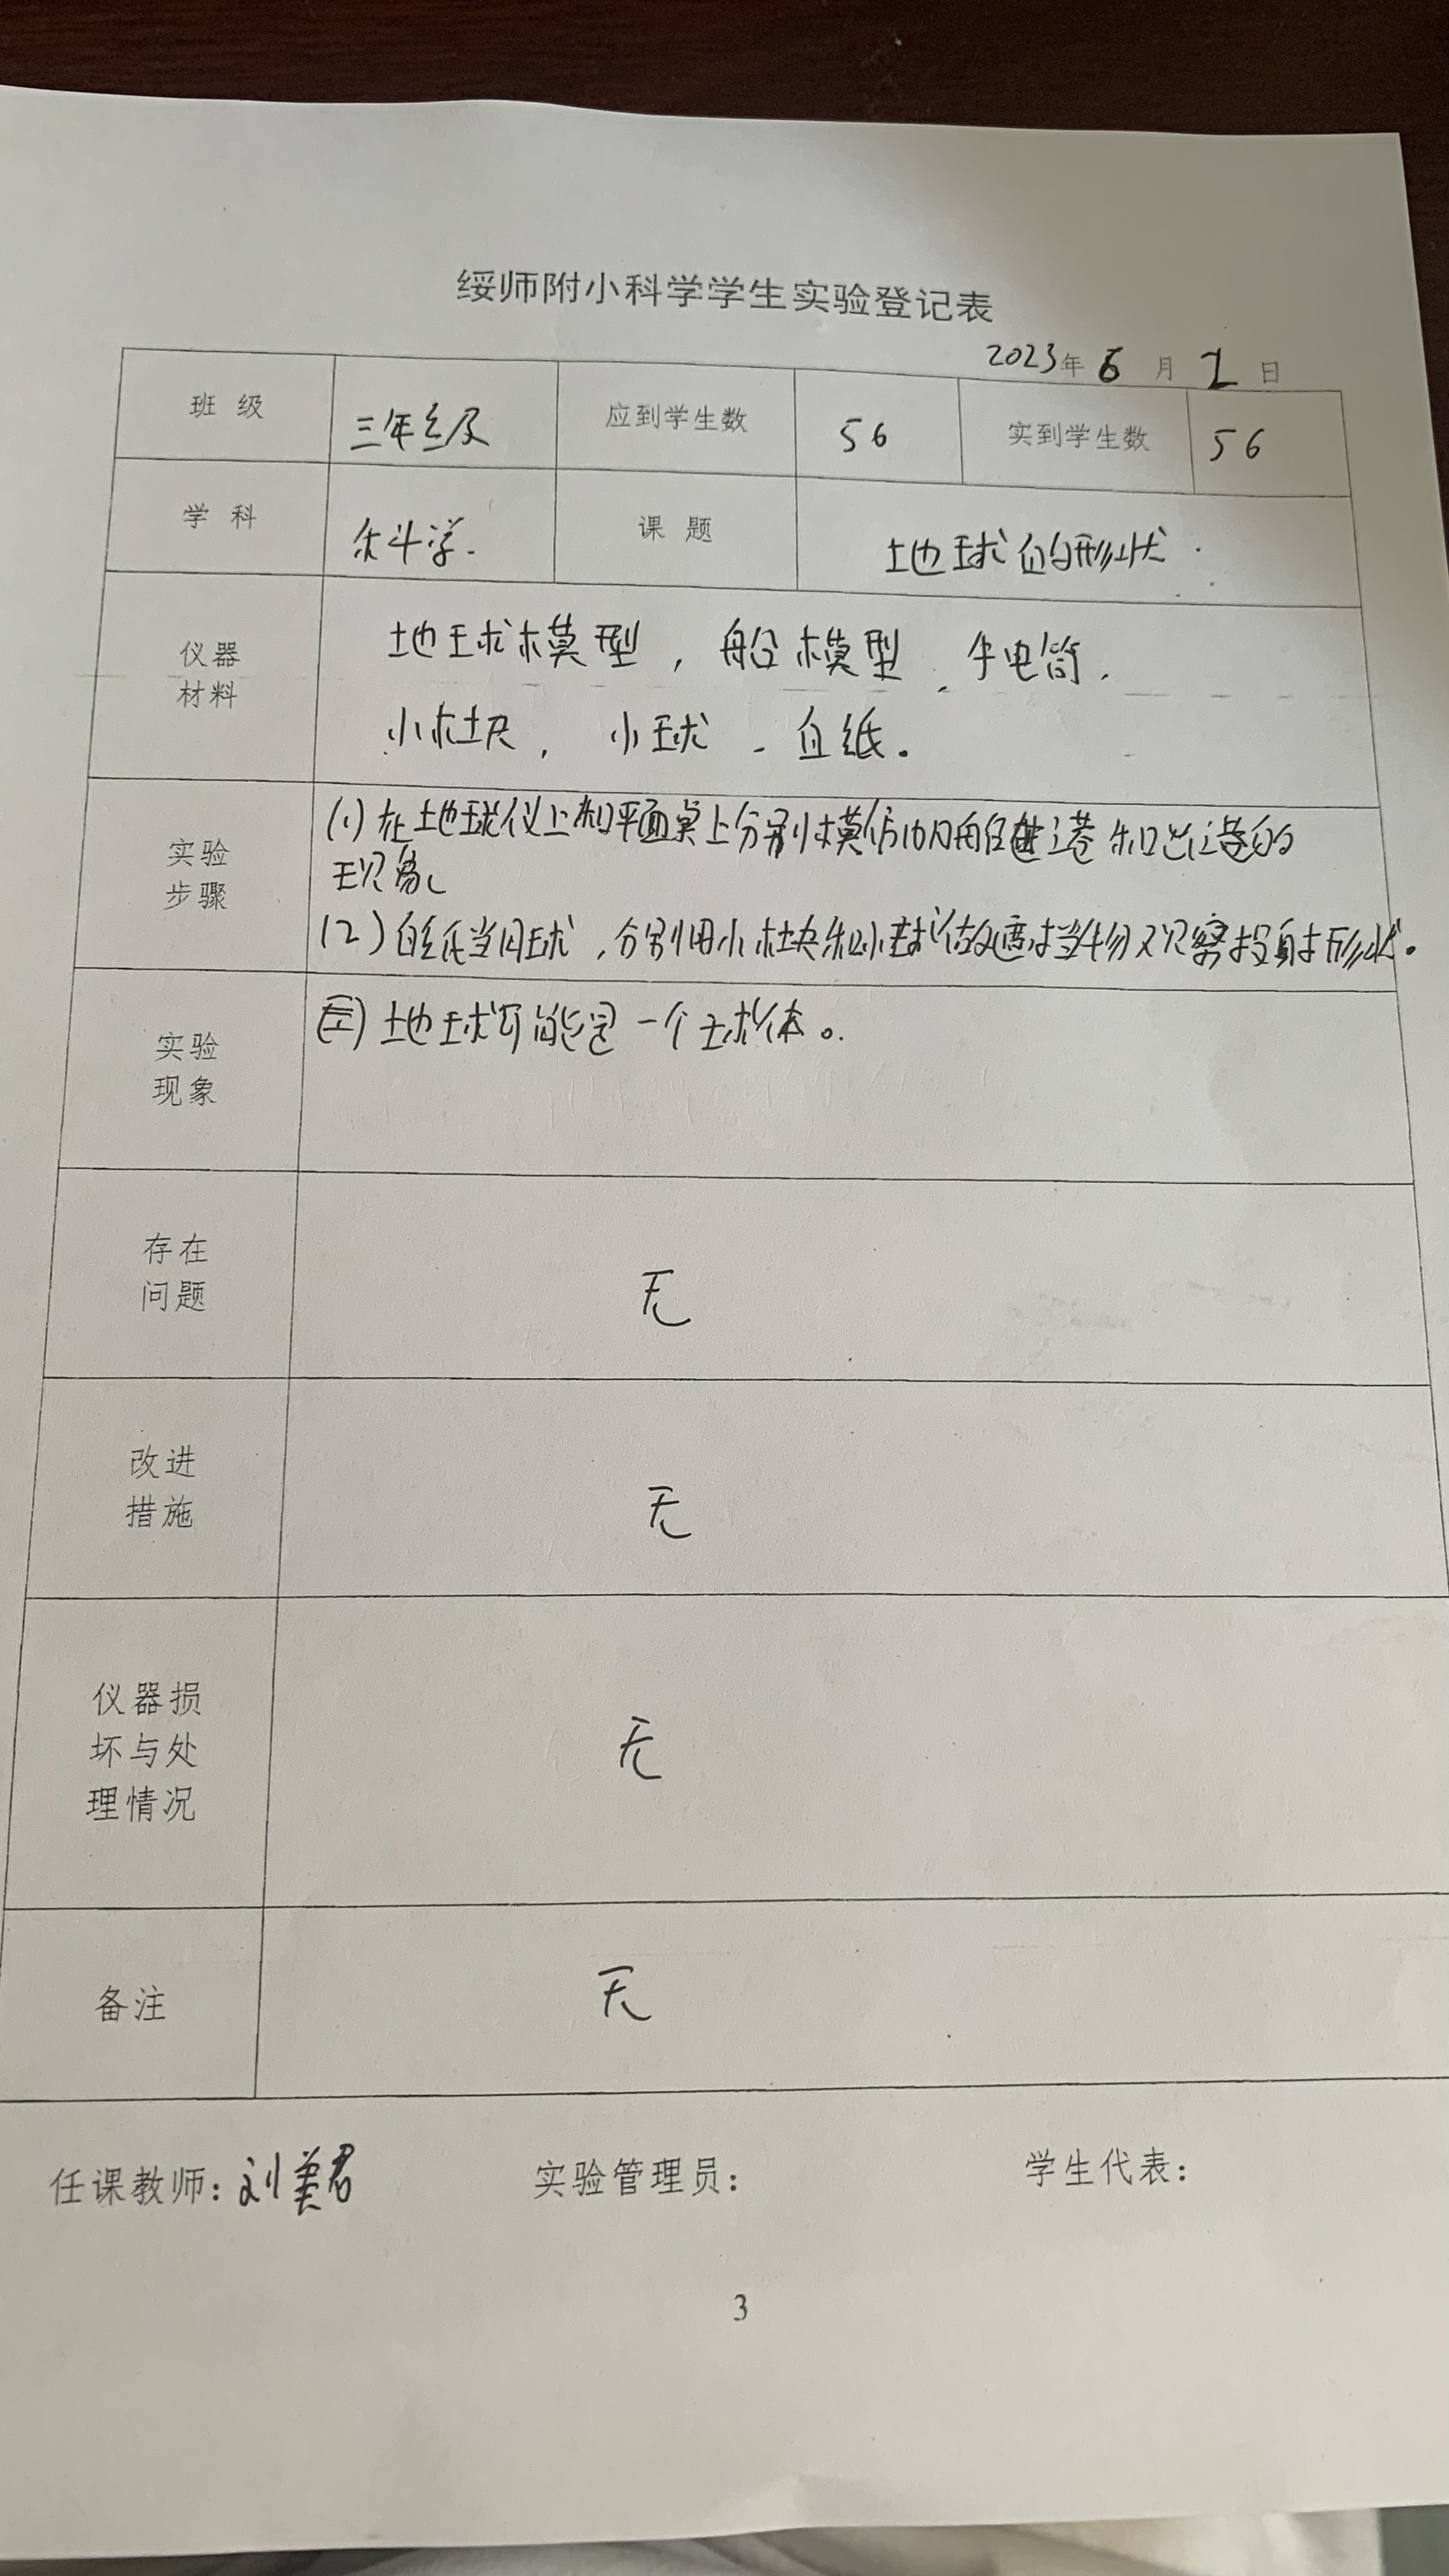 绥师附小科学学生实验登记表
2023年 6 月 1 日
班 级 三年级 应到学生数 56 实到学生数 56
学 科 科学. 课 题 地球的形状.
仪器
材料
地球模型, 船模型, 手电筒,
小木块, 小球, 白纸。
实验
步骤
(1) 在地球仪上和平面桌上分别模仿帆船进港和出港的
现象
(2) 白纸当月球, 分别用小木块和小球做遮挡物观察投射形状。
实验
现象
地球可能是一个球体。
存在
问题
无
改进
措施
无
仪器损
坏与处
理情况
无
备注
无
任课教师: 刘美君 实验管理员: 学生代表:
3